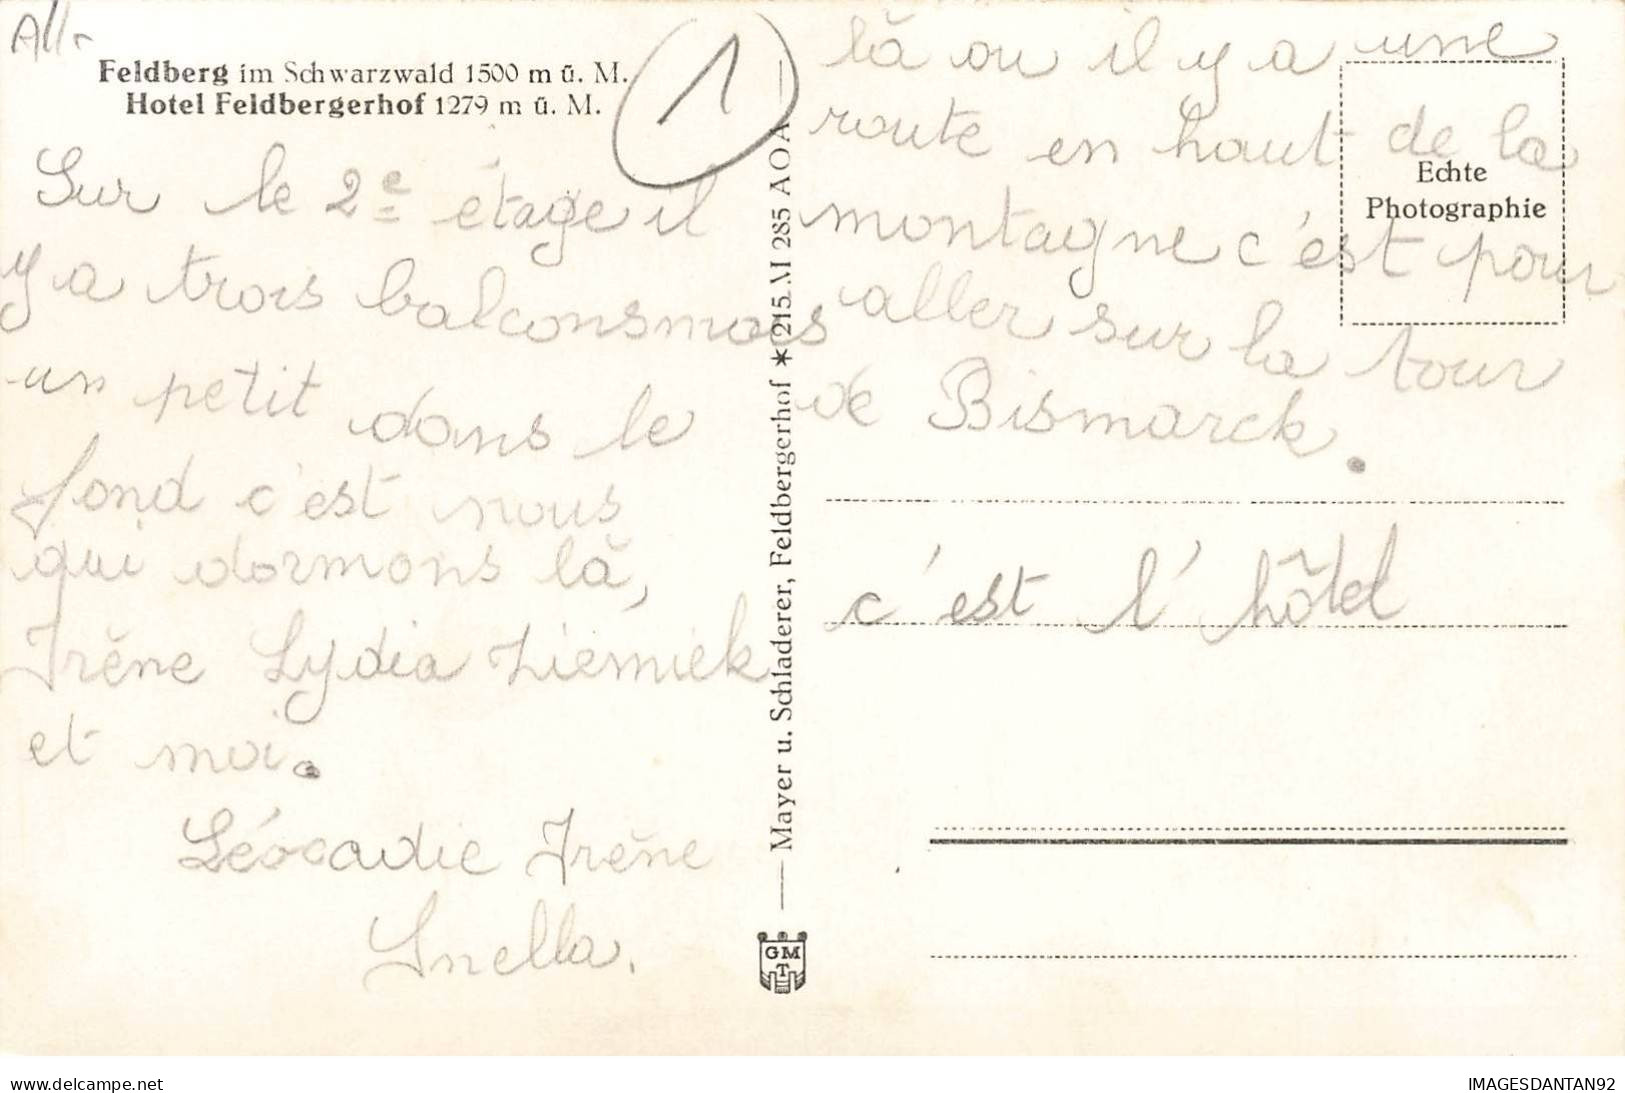 All
Feldberg im Schwarzwald 1500 m ü. M.
Hotel Feldbergerhof 1279 m ü. M.
1
Sur le 2e étage il
y a trois balcons mais
un petit dans le
fond c'est nous
qui dormons là,
Irène Lydia
et moi.
Léocadie Irène
Mayer u. Schladerer, Feldbergerhof * 215 M 285 AOA
GMT
là ou il y a une
route en haut de la
montagne c'est pour
aller sur la tour
de Bismarck.
Echte
Photographie
c'est l'hôtel
www.delcampe.net
IMAGESDANTAN92